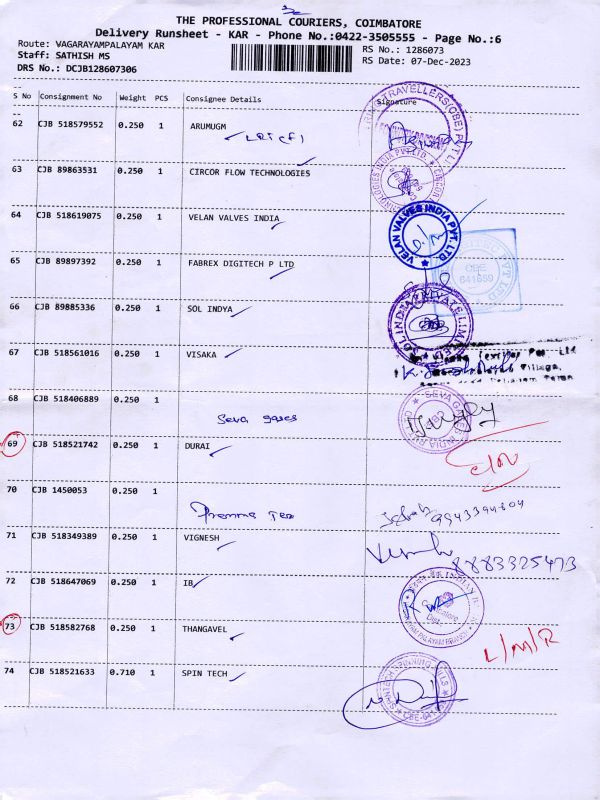 THE PROFESSIONAL COURIERS, COIMBATORE
Delivery Runsheet - KAR - Phone No.:0422-3505555 - Page No.:6
Route: VAGARAYAMPALAYAM KAR
RS No.: 1286073
Staff: SATHISH MS
RS Date: 07-Dec-2023
DRS No.: DCJB128607306
S No Consignment No Weight PCS Consignee Details Signature
62 CJB 518579552 0.250 1 ARUMUGM
63 CJB 89863531 0.250 1 CIRCOR FLOW TECHNOLOGIES
64 CJB 518619075 0.250 1 VELAN VALVES INDIA
VELAN VALVES INDIA PVT. LTD.
65 CJB 89897392 0.250 1 FABREX DIGITECH P LTD
CBE
641659
66 CJB 89885336 0.250 1 SOL INDYA
SOL INDIA PRIVATE LIMITED
67 CJB 518561016 0.250 1 VISAKA
68 CJB 518406889 0.250 1
Seva gases
SEVA GASES
69 CJB 518521742 0.250 1 DURAI
70 CJB 1450053 0.250 1
Tea
71 CJB 518349389 0.250 1 VIGNESH
8883325473
72 CJB 518647069 0.250 1 IB
73 CJB 518582768 0.250 1 THANGAVEL
L/M/R
74 CJB 518521633 0.710 1 SPIN TECH